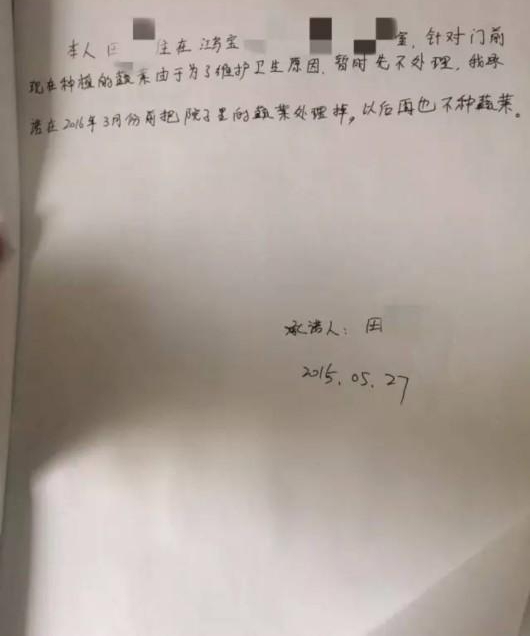 本人 田 住在 江南宝 室, 针对门前
现在种植的蔬菜由于为了维护卫生原因, 暂时先不处理, 我承
诺在2016年3月份前把院子里的蔬菜处理掉, 以后再也不种蔬菜。
承诺人: 田
2015.05.27